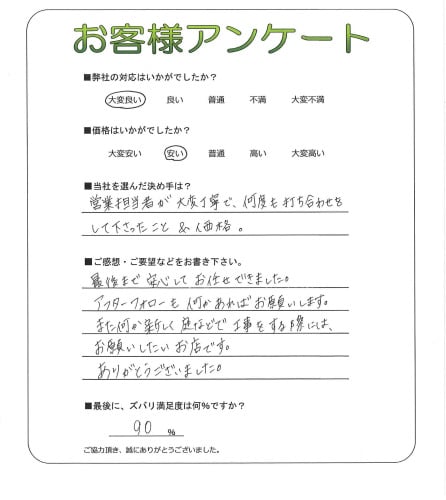 お客様アンケート
■弊社の対応はいかがでしたか?
大変良い 良い 普通 不満 大変不満
■価格はいかがでしたか?
大変安い 安い 普通 高い 大変高い
■当社を選んだ決め手は?
営業担当者が大変丁寧で、何度も打ち合わせを
して下さったこと & 価格。
■ご感想・ご要望などをお書き下さい。
最後まで安心してお任せできました。
アフターフォローも何かあればお願いします。
また何か新しく庭などで工事をする際には、
お願いしたいお店です。
ありがとうございました。
■最後に、ズバリ満足度は何%ですか?
90 %
ご協力頂き、誠にありがとうございました。